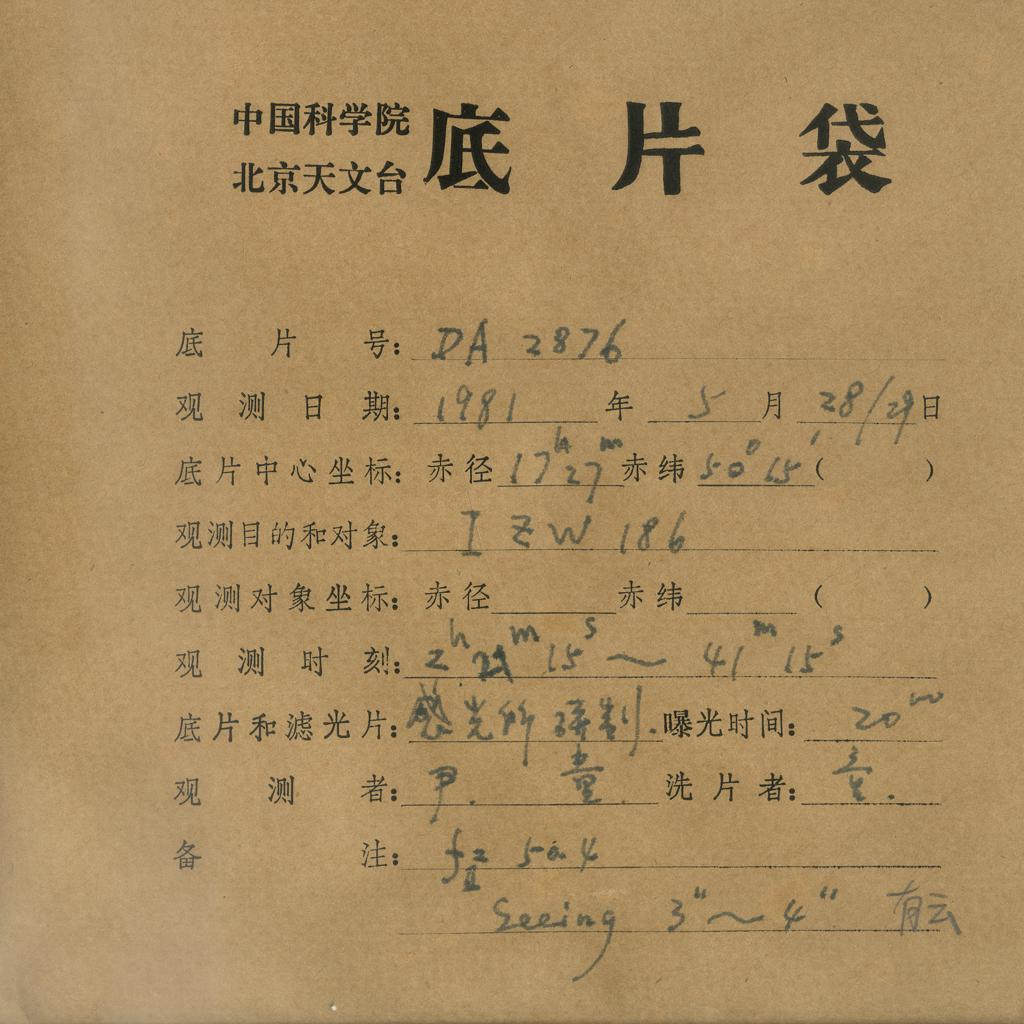 中国科学院
北京天文台
底片袋
底片号: DA 2876
观测日期: 1981 年 5 月 28/29 日
底片中心坐标: 赤径 17h27m 赤纬 50°15′ ( )
观测目的和对象: I ZW 186
观测对象坐标: 赤径 赤纬 ( )
观测时刻: 2h21m15s ~ 41m15s
底片和滤光片: 感光所研制. 曝光时间: 20m
观测者: 尹. 童. 洗片者: 童.
备注: fⅡ 50.4
Seeing 3″~4″ 有云